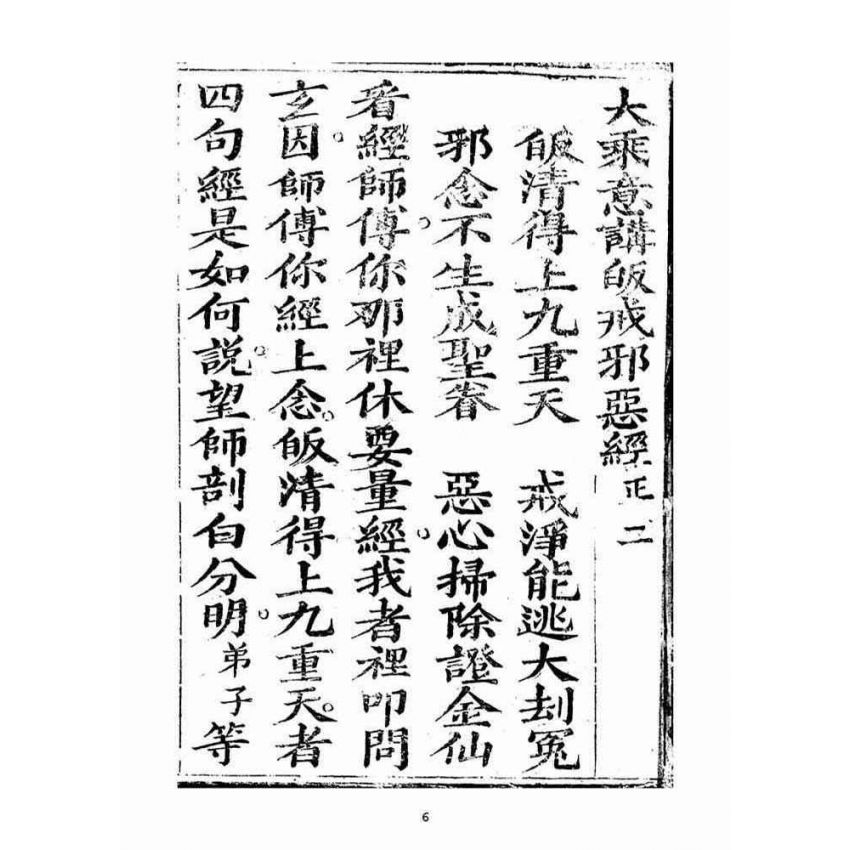 大乘意講皈戒邪惡經 正 二
皈清得上九重天　戒淨能逃大刦冤
邪念不生成聖眷　惡心掃除證金仙
看經師傅。你那裡休要量經。我者裡叩問
玄因。師傅你經上念。皈清得上九重天。者
四句經是如何說。望師剖白分明。弟子等
6